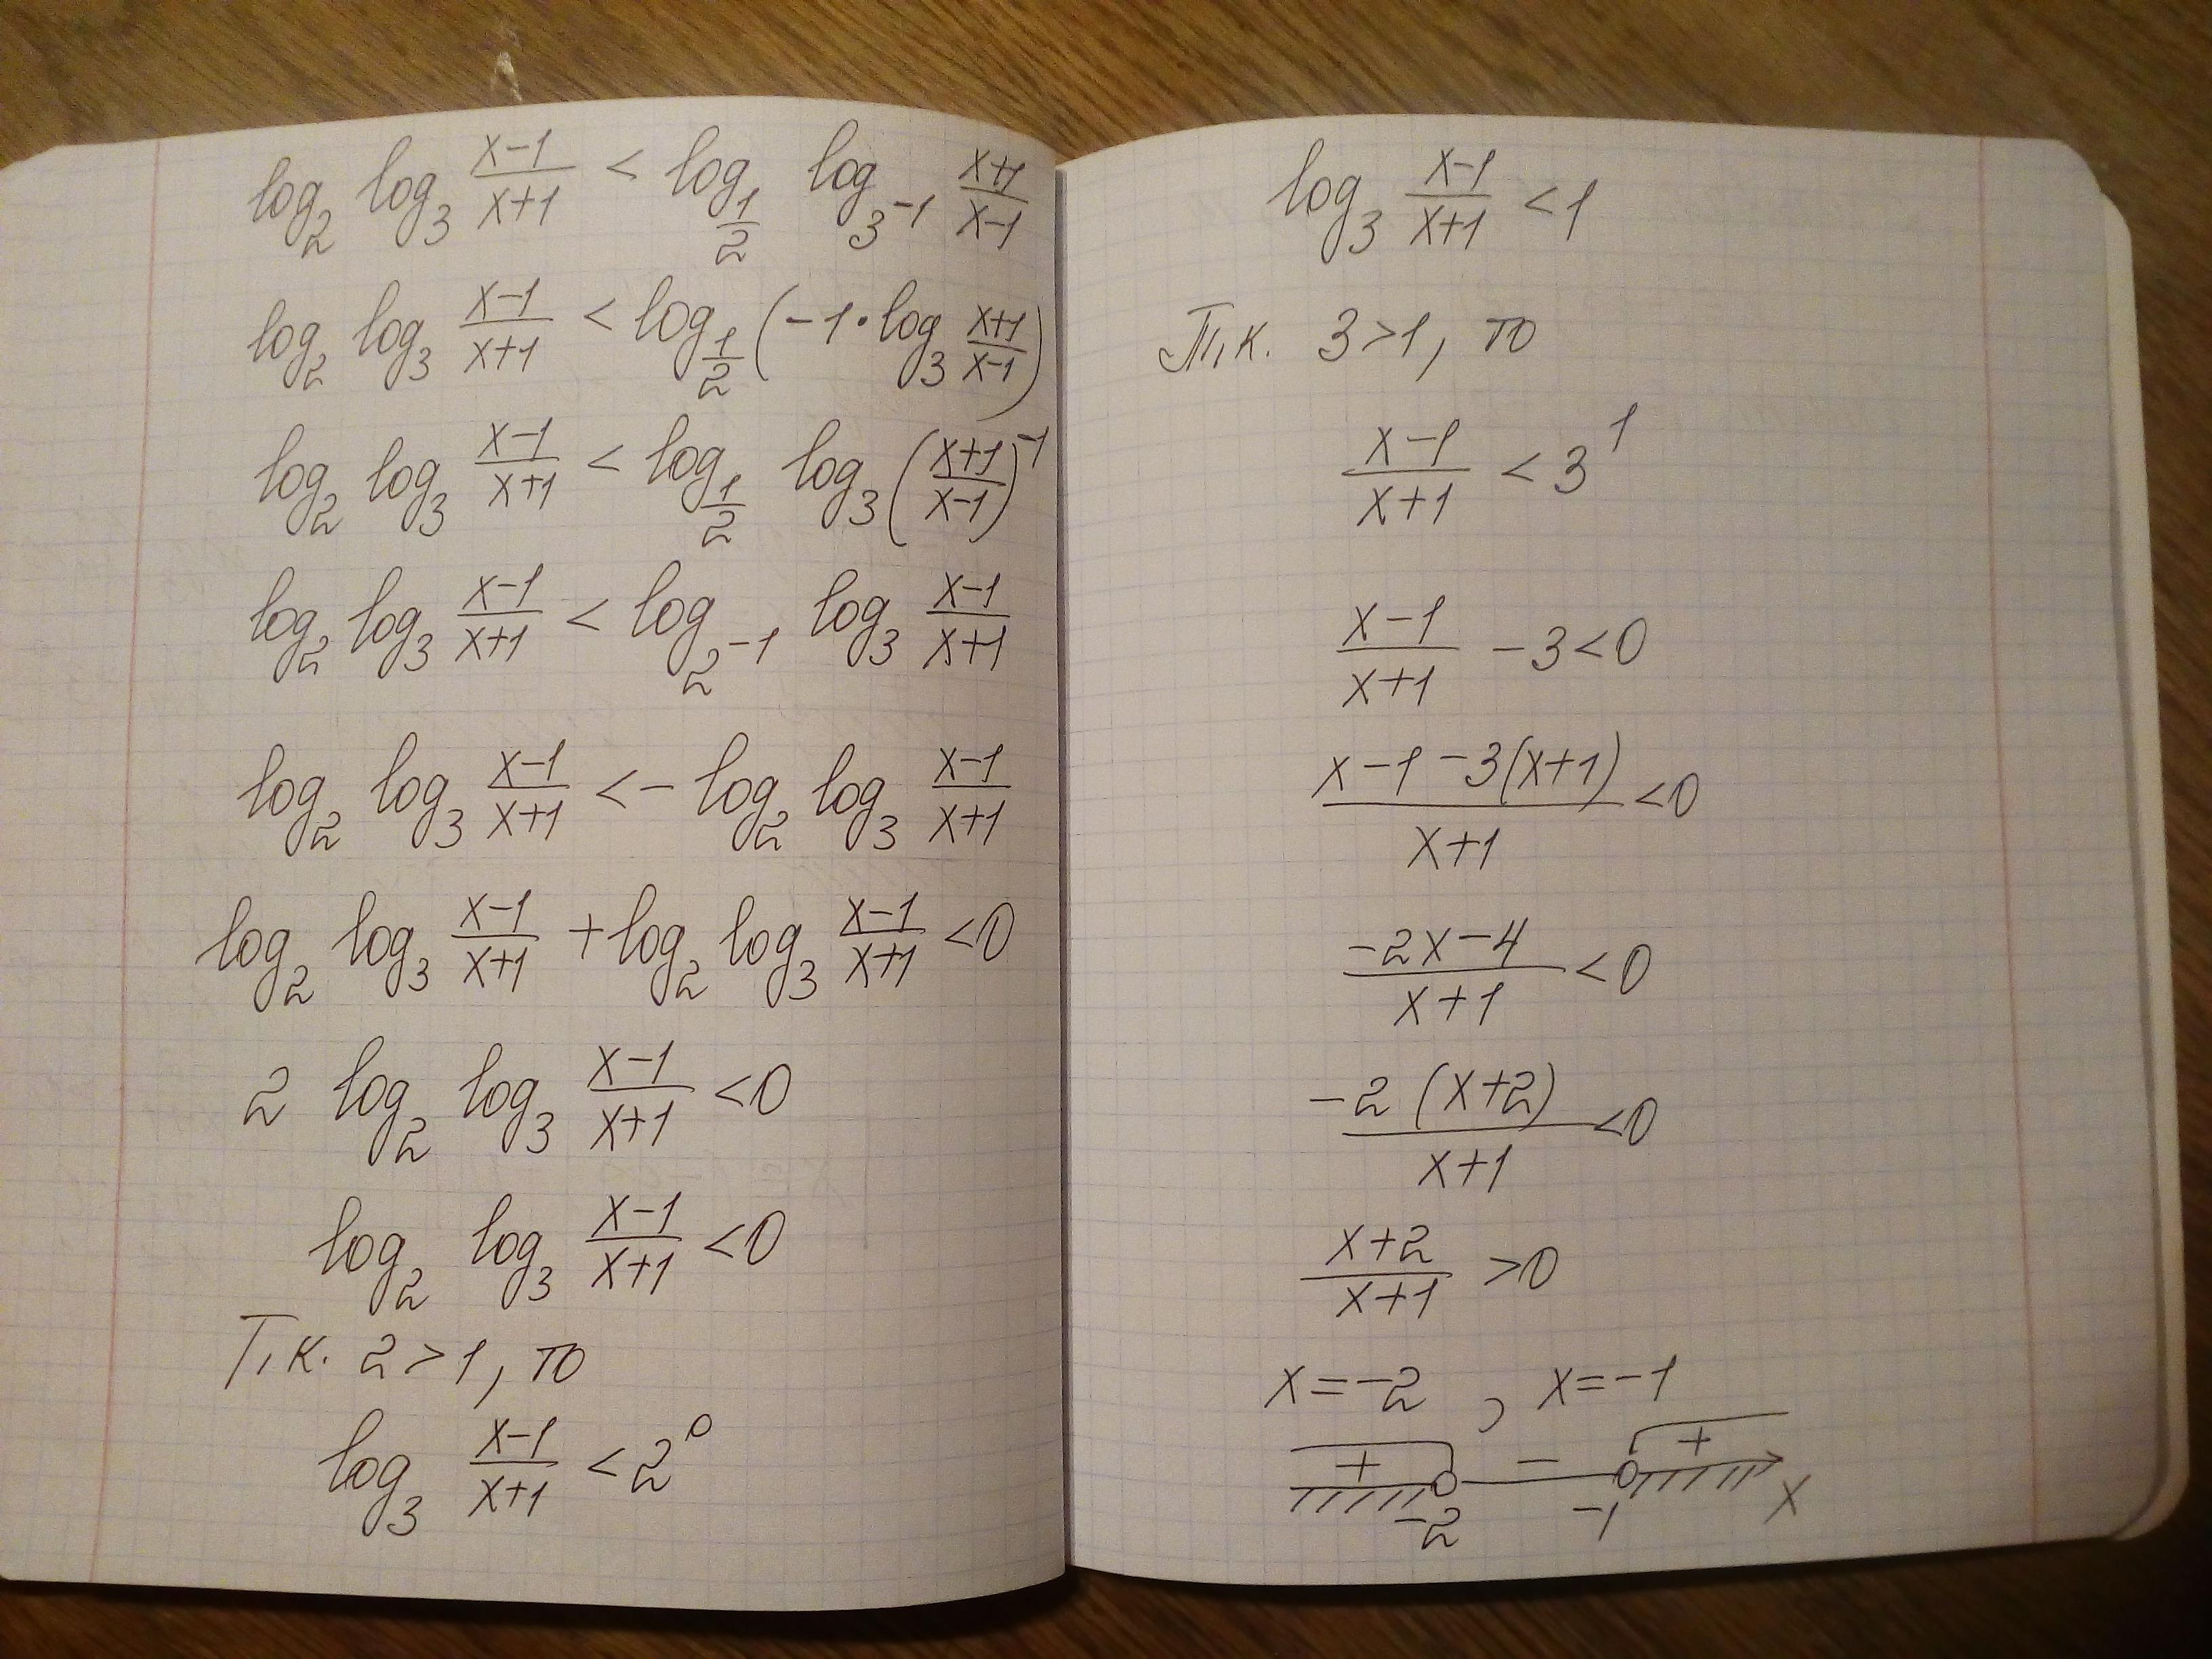 log₂ log₃ (x-1)/(x+1) < log_(1/2) log_(3⁻¹) (x+1)/(x-1)
log₂ log₃ (x-1)/(x+1) < log_(1/2) (-1·log₃ (x+1)/(x-1))
log₂ log₃ (x-1)/(x+1) < log_(1/2) log₃ ((x+1)/(x-1))⁻¹
log₂ log₃ (x-1)/(x+1) < log_(2⁻¹) log₃ (x-1)/(x+1)
log₂ log₃ (x-1)/(x+1) < - log₂ log₃ (x-1)/(x+1)
log₂ log₃ (x-1)/(x+1) + log₂ log₃ (x-1)/(x+1) < 0
2 log₂ log₃ (x-1)/(x+1) < 0
log₂ log₃ (x-1)/(x+1) < 0
Т.к. 2 > 1, то
log₃ (x-1)/(x+1) < 2⁰
log₃ (x-1)/(x+1) < 1
Т.к. 3 > 1, то
(x-1)/(x+1) < 3¹
(x-1)/(x+1) - 3 < 0
(x-1-3(x+1))/(x+1) < 0
(-2x-4)/(x+1) < 0
(-2(x+2))/(x+1) < 0
(x+2)/(x+1) > 0
x=-2, x=-1
+ - +
-2 -1 x